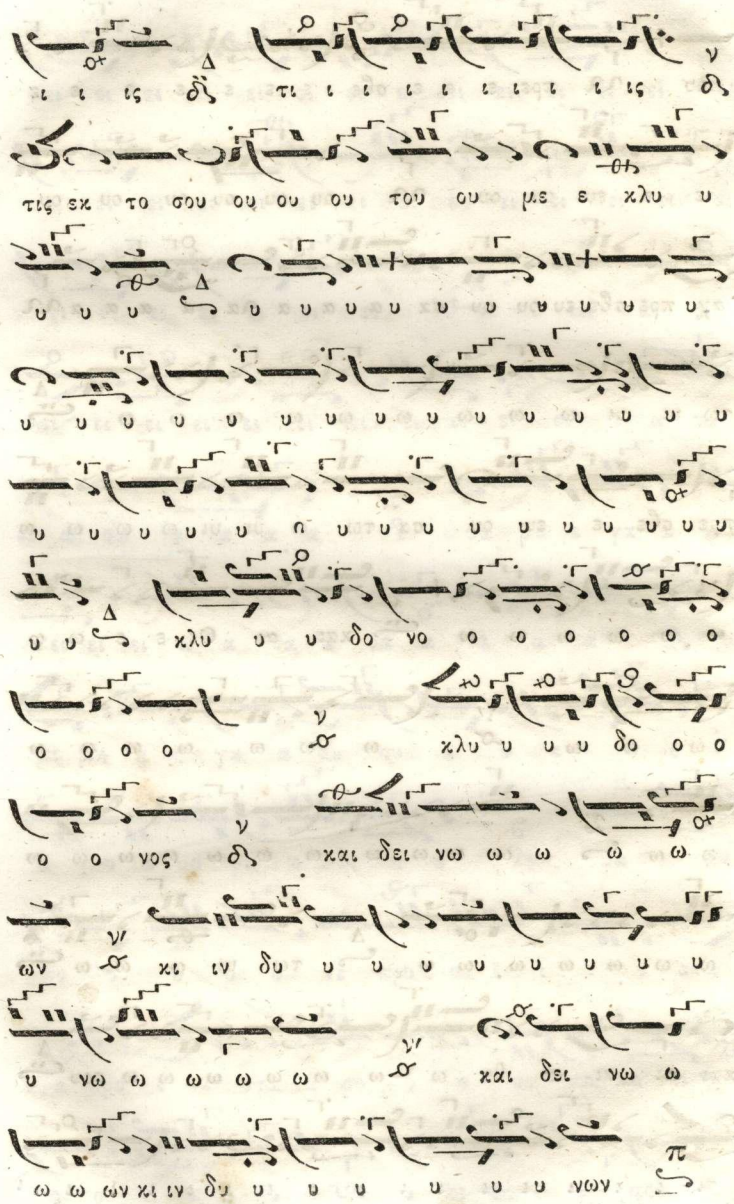 ι ι ις Δ τι ι ι ι ι ι ι ι ις ν
τις εκ το σου ου ου ου του ου με ε κλυ υ
υ υ υ Δ υ υ υ υ υ υ υ υ υ υ
υ υ υ υ υ υ υ υ υ υ υ υ υ υ υ
υ υ υ υ υ υ υ υ υ υ υ υ υ υ υ
υ υ Δ κλυ υ υ δο νο ο ο ο ο ο ο
ο ο ο ο ν κλυ υ υ υ δο ο ο
ο ο νος ν και δει νω ω ω ω ω
ων ν' κι ιν δυ υ υ υ υ υ υ υ υ
υ νω ω ω ω ω ν' και δει νω ω
ω ω ων κι ιν δυ υ υ υ υ υ υ νων π